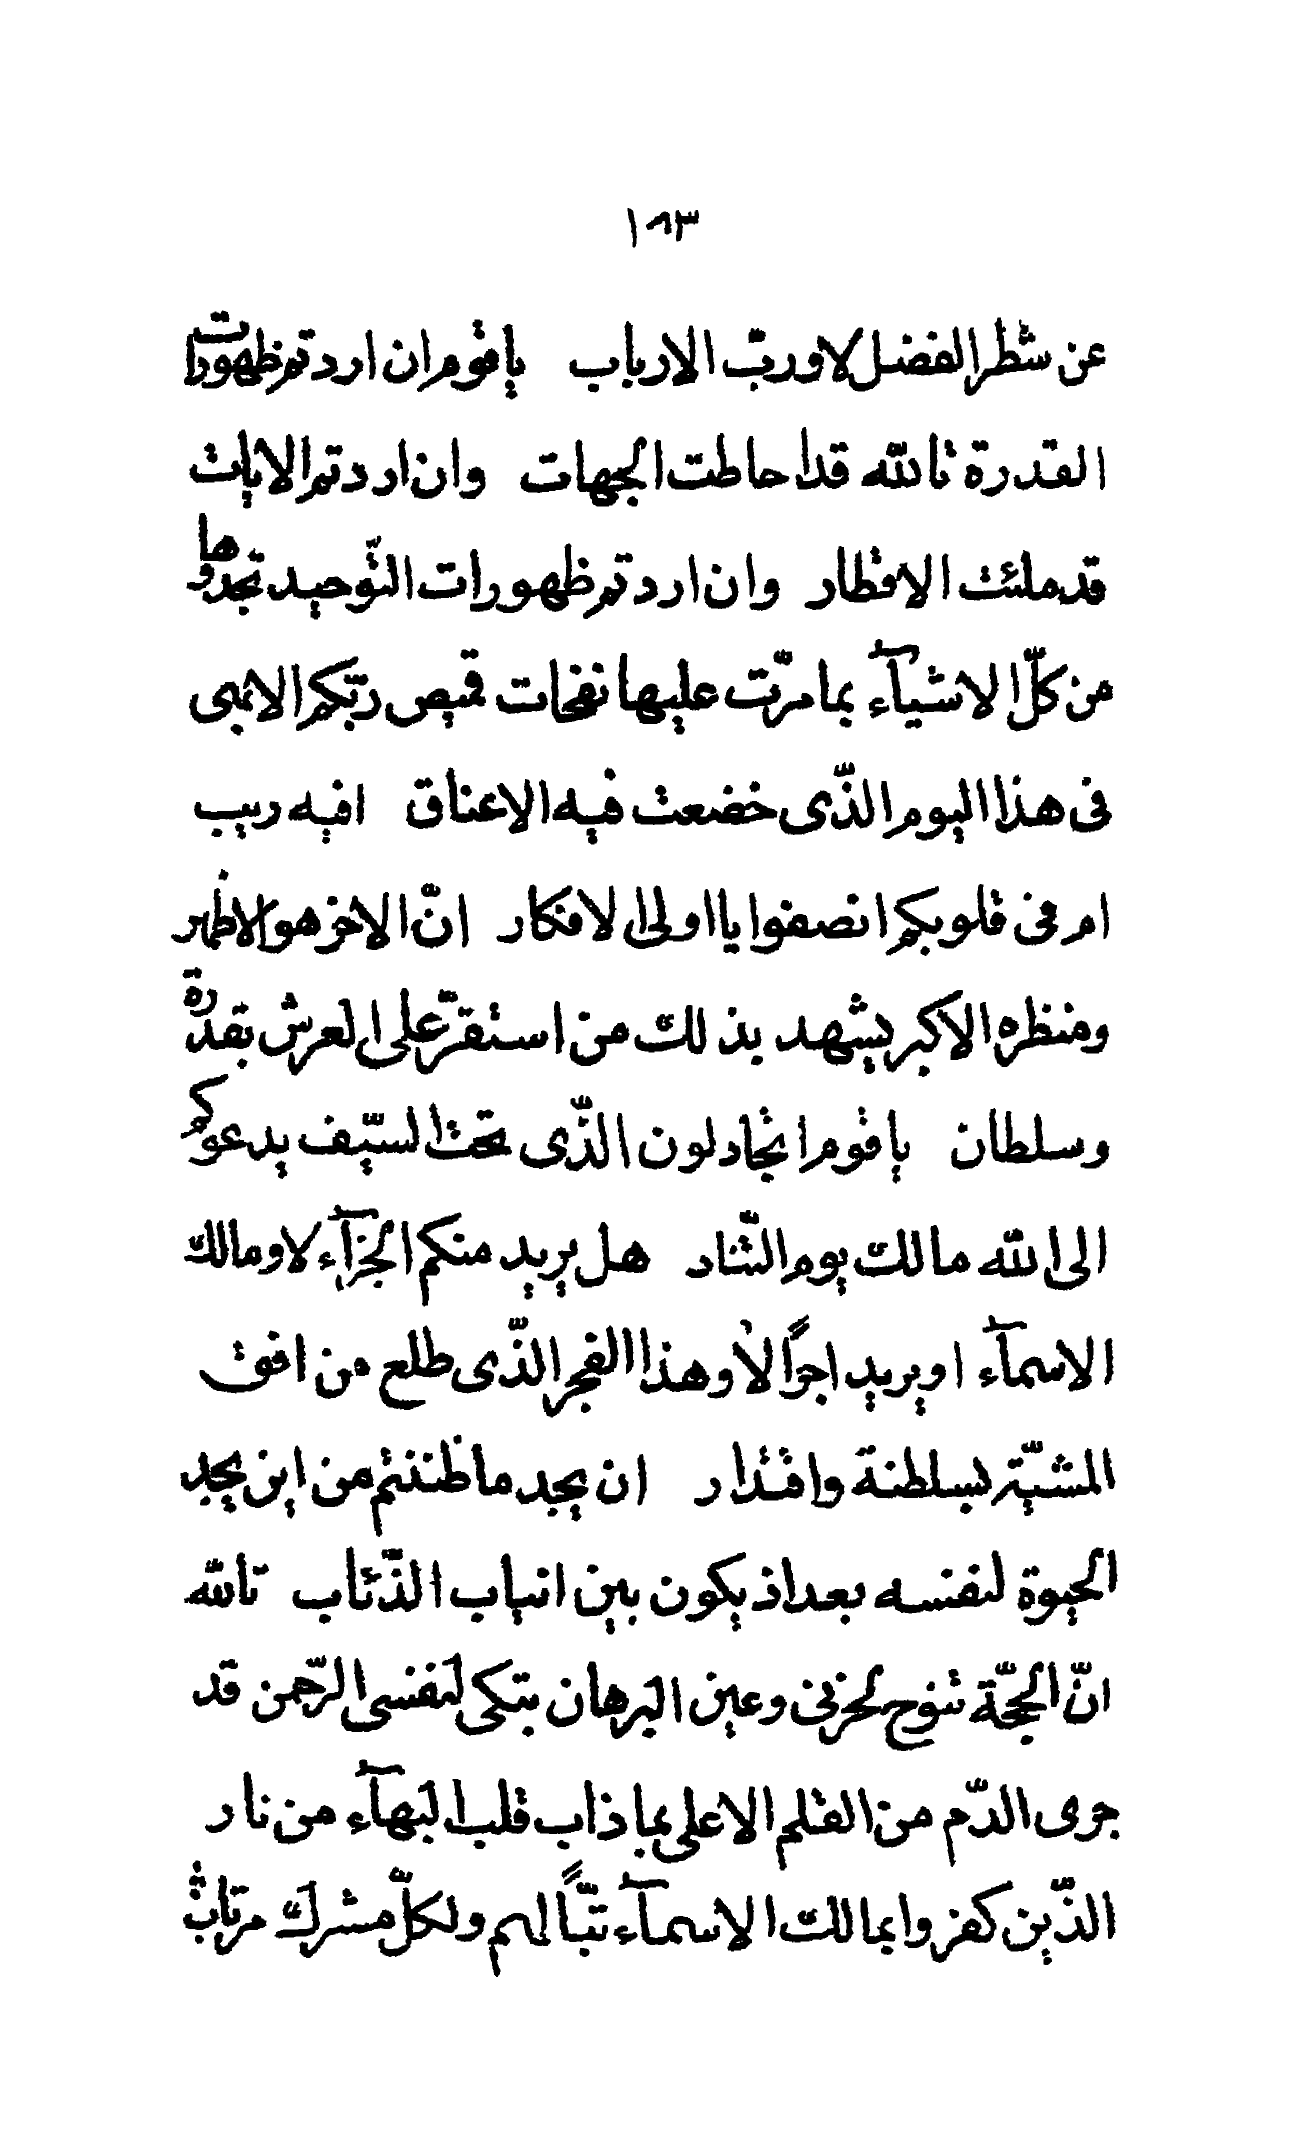 ١٨٣
عن شطر الفضل لا و ربّ الارباب يا قوم ان اردتم ظهورات
القدرة تالله قد احاطت الجهات و ان اردتم الايات
قد ملئت الاقطار و ان اردتم ظهورات التّوحيد تجدوها
من كلّ الاشيآء بما مرّت عليها نفحات قميص ربّكم الابهى
فى هذا اليوم الذّى خضعت فيه الاعناق افيه ريب
ام فى قلوبكم انصفوا يا اولى الافكار انّ الاخر هو الاظهر
و منظره الاكبر يشهد بذلك من استقرّ على العرش بقدرة
و سلطان يا قوم اتجادلون الذّى تحت السّيف يدعوكم
الى الله مالك يوم التّناد هل يريد منكم الجزآء لا و مالك
الاسمآء او يريد اجراً لا و هذا الفجر الذّى طلع من افق
المشيّة بسلطنة و اقتدار ان يجد ما ظننتم من اين يجد
الحيوة لنفسه بعد اذ يكون بين انياب الذّئاب تالله
انّ الحجّة تنوح لحزنى و عين البرهان بتكى لنفسى الرّحمن قد
جرى الدّم من القلم الاعلى بما ذاب قلب البهآء من نار
الذّين كفروا بمالك الاسمآء تبّاً لهم و لكلّ مشرك مرتاب